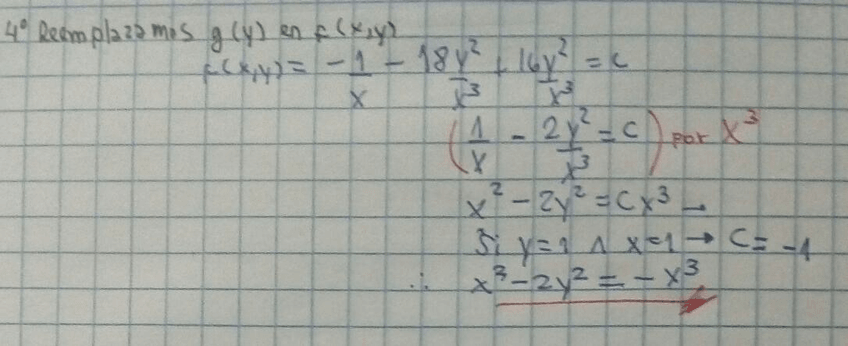 4° Reemplazamos g(y) en F(x,y)
F(x,y) = -1/x - 18y²/x³ + 16y²/x³ = c
(1/x - 2y²/x³ = c) por x³
x² - 2y² = cx³ →
Si y=1 ∧ x=1 → c = -1
∴ x² - 2y² = -x³